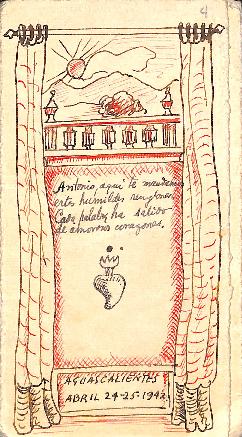 4
Antonio, aquí te mandamos
estos humildes renglones.
Cada palabra ha salido
de amorosos corazones.
AGUASCALIENTES
ABRIL 24-25-1942